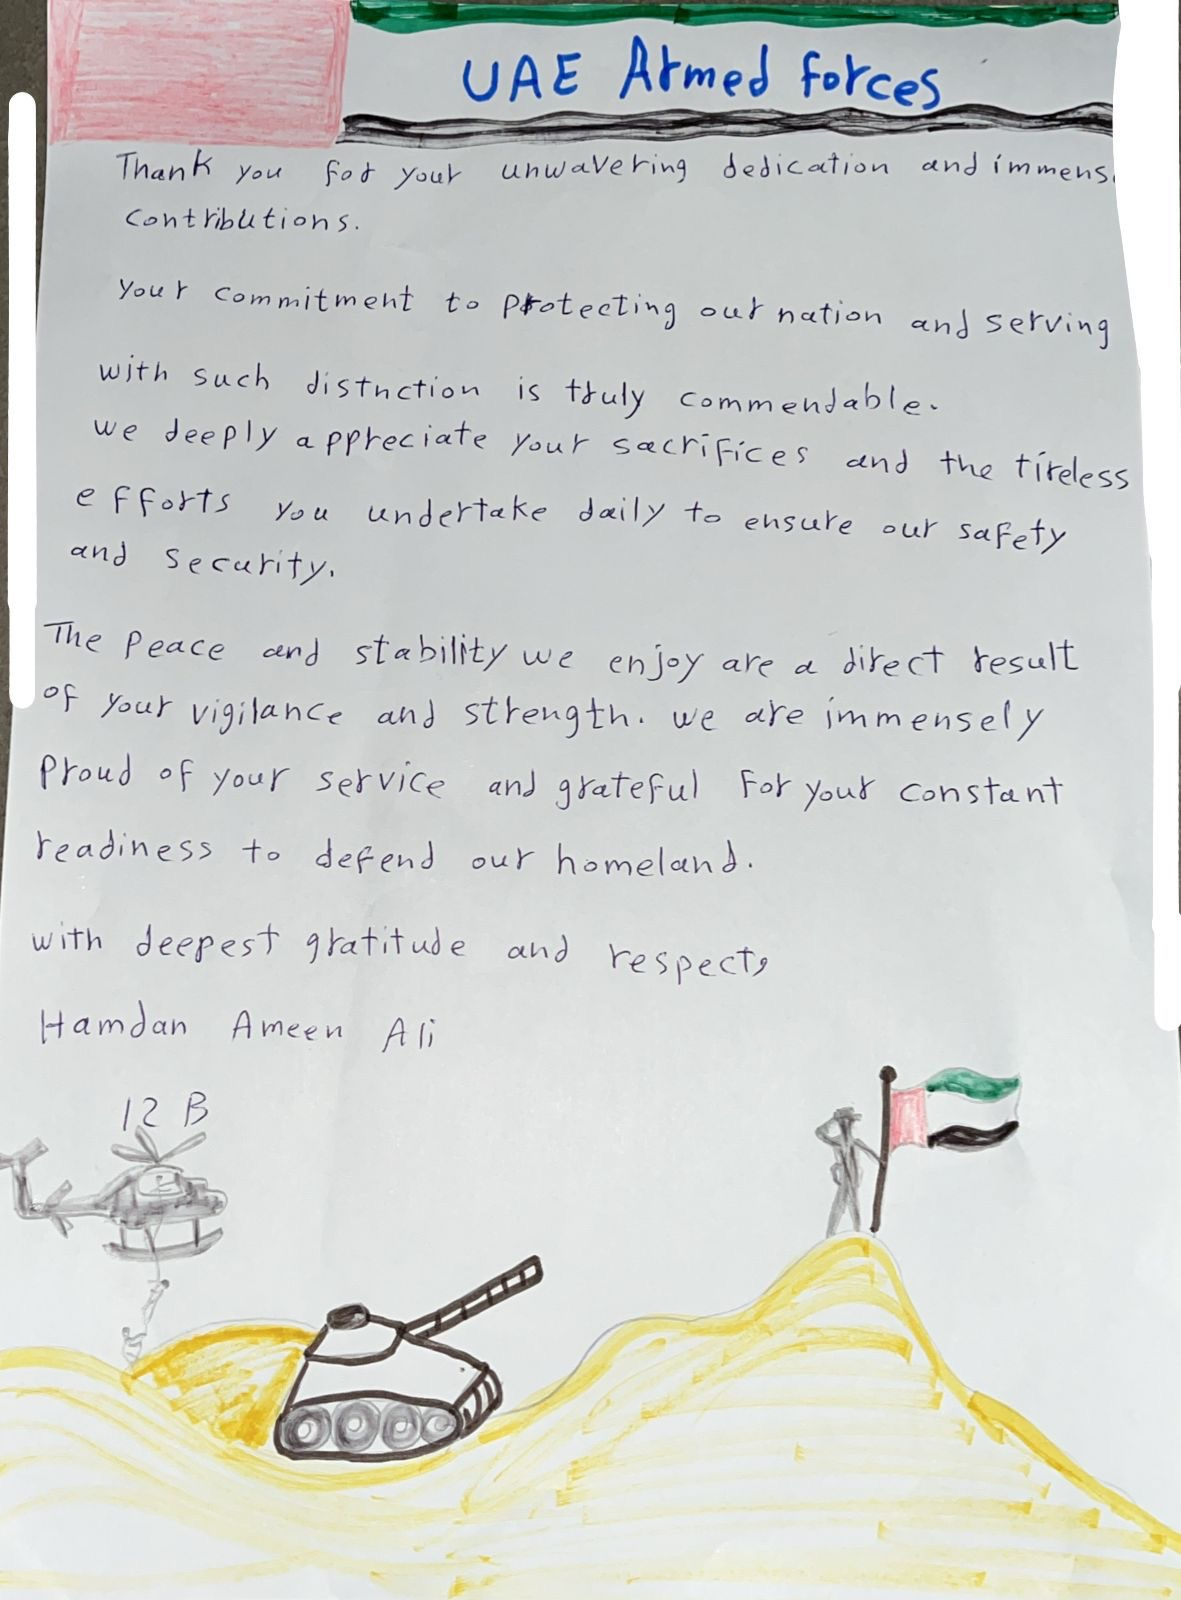 UAE Armed forces
Thank you for your unwavering dedication and immens
contributions.
Your commitment to protecting our nation and serving
with such distnction is truly commendable.
we deeply appreciate your sacrifices and the tireless
efforts you undertake daily to ensure our safety
and security.
The peace and stability we enjoy are a direct result
of your vigilance and strength. we are immensely
proud of your service and grateful for your constant
readiness to defend our homeland.
with deepest gratitude and respect,
Hamdan Ameen Ali
12 B